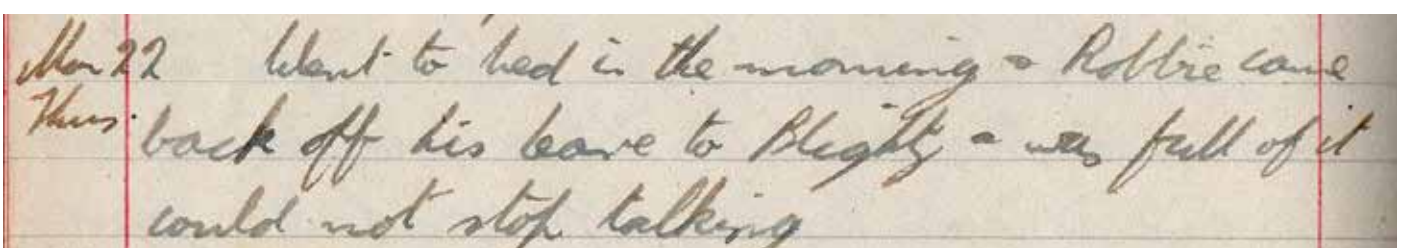 Mar 22 Went to bed in the morning & Robbie came
Thurs. back off his leave to Blighty & was full of it
could not stop talking